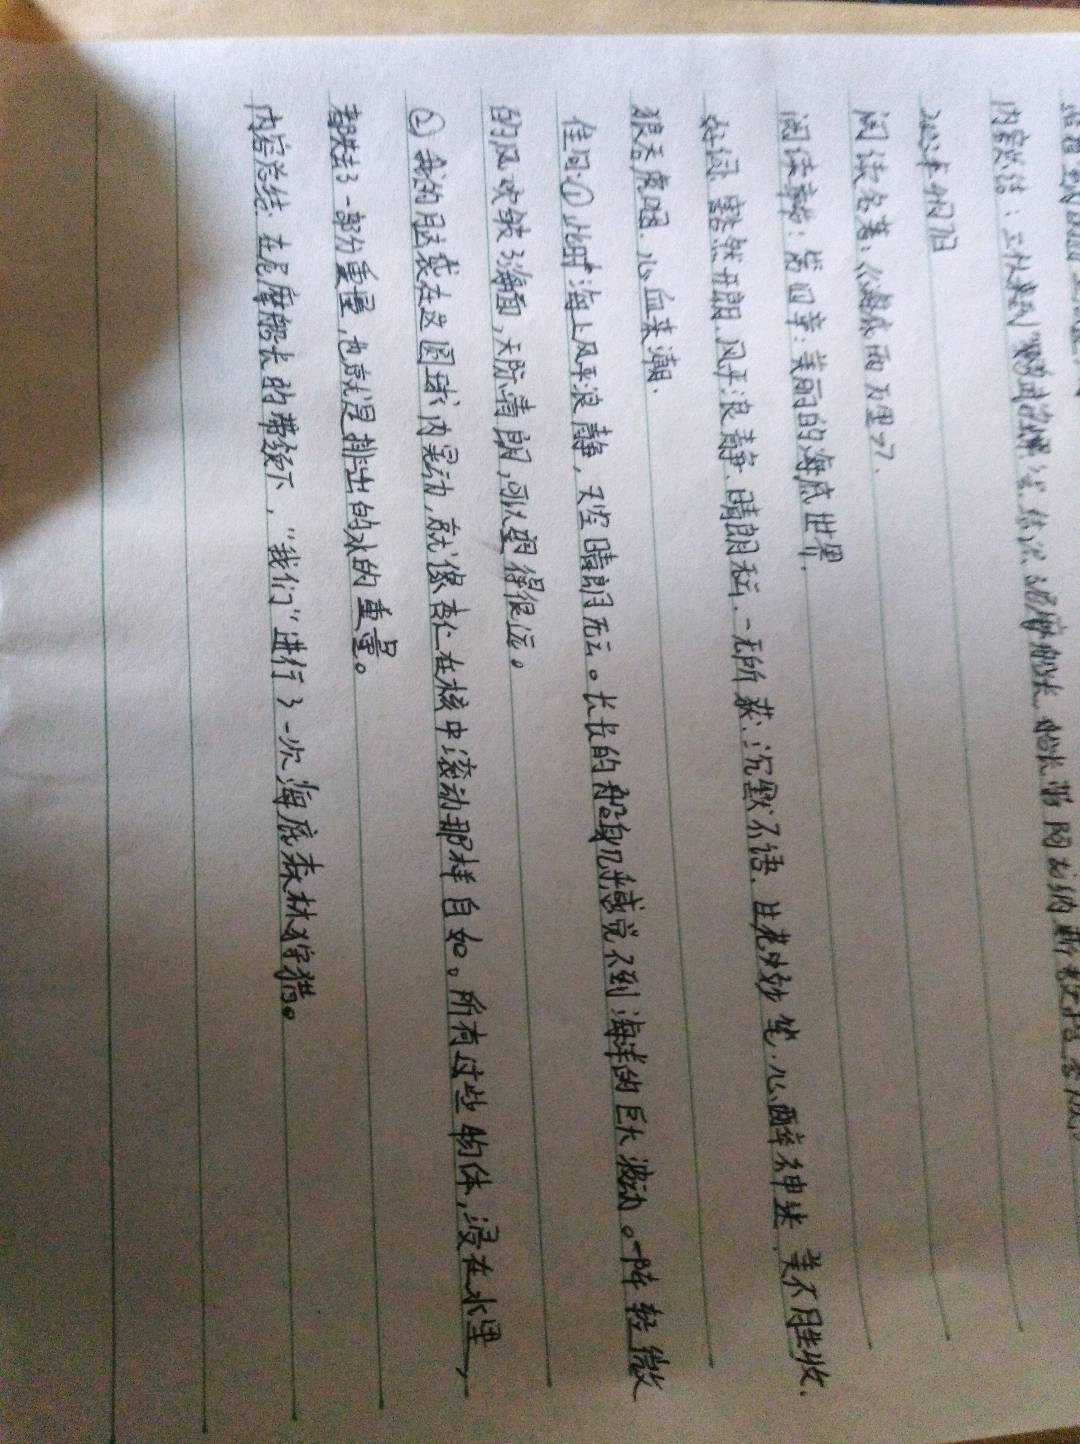 内容总结:
2023年4月7日
阅读名著:《海底两万里》.
阅读章节:第四章:美丽的海底世界.
好词:豁然开朗.风平浪静.晴朗无云.一无所获.沉默不语.生花妙笔.心醉神迷.美不胜收.
狼吞虎咽.心血来潮.
佳句:①此时海上风平浪静,天空晴朗无云。长长的船身几乎感觉不到海洋的巨大波动。一阵轻微
的风吹皱了海面,天际清朗,可以望得很远。
②我的脑袋在这圆球内晃动,就像杏仁在核中滚动那样自如。所有这些物体,浸在水里,
都失去了一部分重量,也就是排出的水的重量。
内容总结:在尼摩船长的带领下,“我们”进行了一次海底森林狩猎。